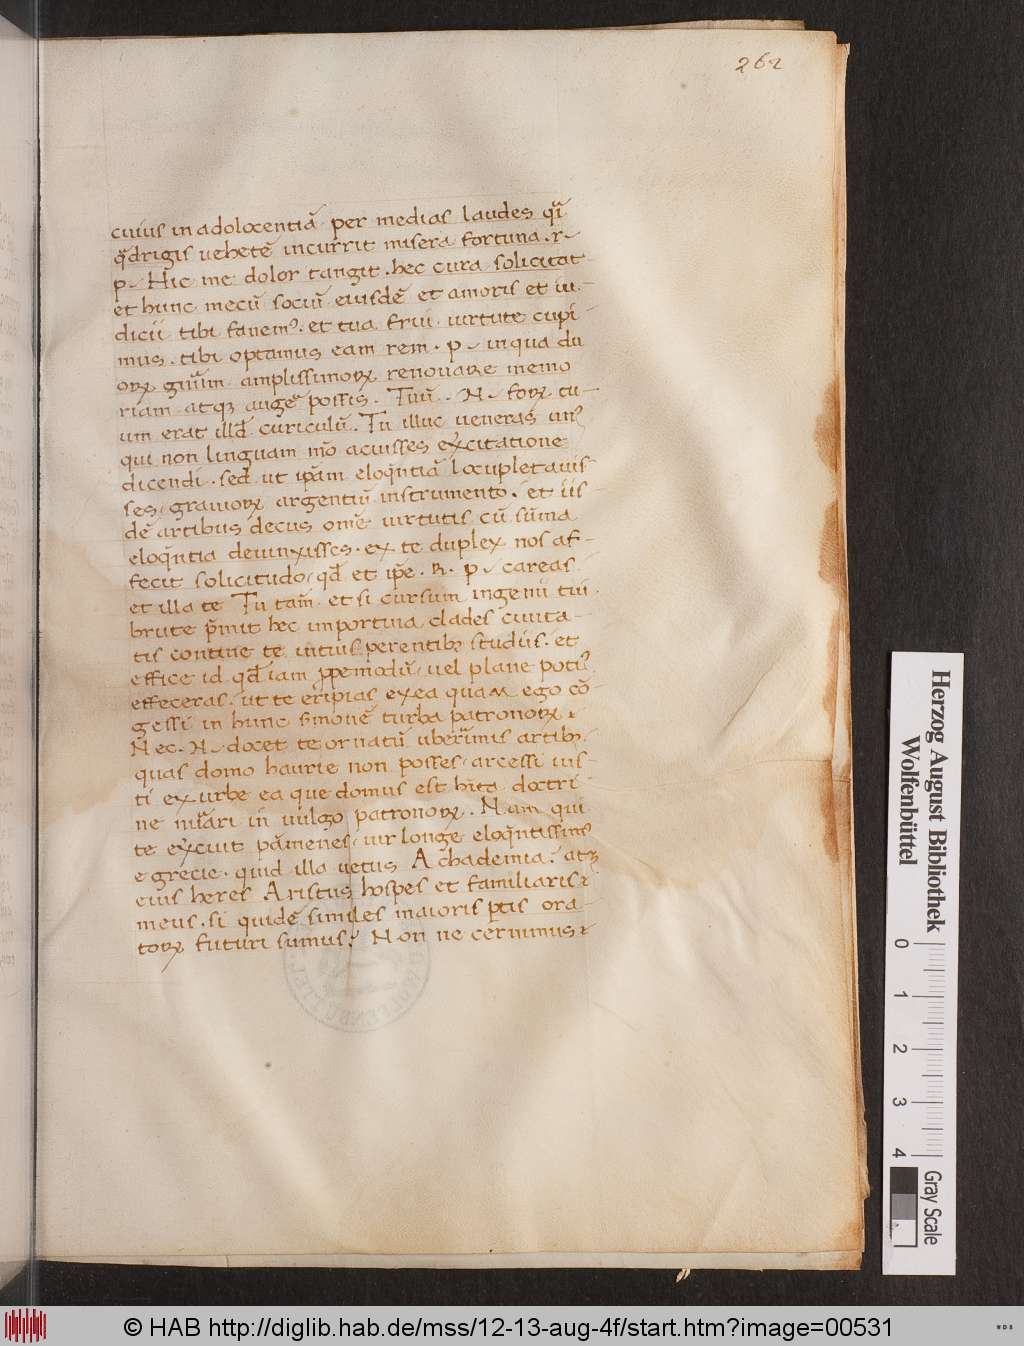 262
cuius in adolocentiā per medias laudes q̄ı
q̄drigis uehetē incurrit misera fortuna . r~
p~ Hic me dolor tangit . hec cura solicitat
et hunc mecū sociū eiusdē et amoris et iu-
dicii tibi fauem⁹ . et tua frui uirtute cupi-
mus . tibi optamus eam rem . p~ in qua du
oꝝ amplissimoꝝ renouare memo
riam atqꝫ augeꝛ possis . Tuū . N~ foꝝ tu-
um erat illd̄ curiculū . Tu illuc ueneras un⁹
qui non linguam mō acuisses exercitatione
dicendi . sed ut ip̄am eloq̄ntiā locupletauis-
ses grauioꝝ argentiū instrumento . et iis-
dē artibus decus omē uirtutis cū sūma
eloq̄ntia deuinxisses . ex te duplex nos af-
fecit solicitudo qd̄ et ip̄e . R . p~ careas
et illa te Tu tam̄ et si cursum ingenii tui
brute p̄mit hec importuna clades ciuita-
tis contine te in tuis perentibꝫ studiis . et
effice id qd̄ iam ꝓpemodū uel plane poti⁹
effeceras . ut te eripias ex ea quam ego cō-
gessi in hunc s̄monē turba patronoꝝ .
Nec . N~ decet te ornatū uberīmis artibꝫ .
quas domo haurie non posses arcessi uis-
ti ex urbe ea que domus est hīta doctri-
ne nūari in uulgo patronoꝝ . Nam qui
te exercuit pāmenes uir longe eloq̄ntissim⁹
e grecie . quid illa uetus Achademia . atqꝫ
eius heres Aristus hospes et familiaris
meus . si quidē similes maioris ptis ora-
toꝝ futuri sumus ? Non ne cernimus
Herzog August Bibliothek
Wolfenbüttel
0 1 2 3 4
Gray Scale
© HAB http://diglib.hab.de/mss/12-13-aug-4f/start.htm?image=00531